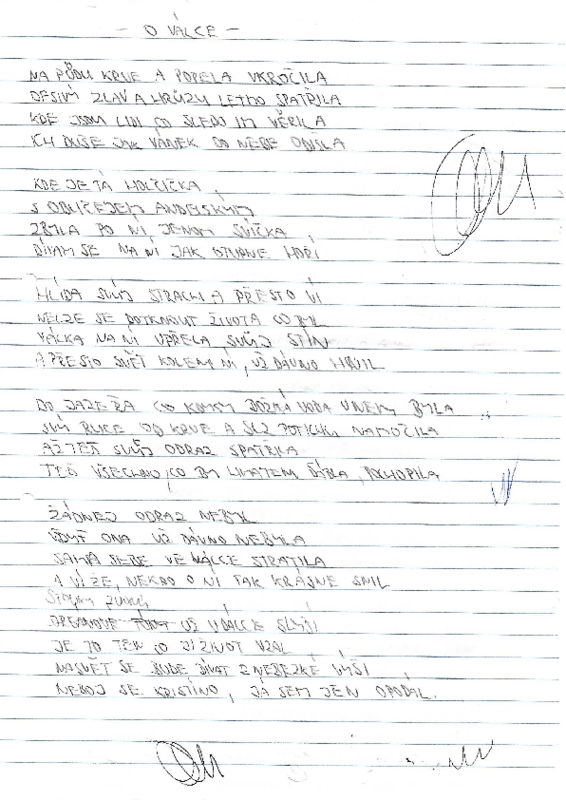 - O VÁLCE -
NA PŮDU KRVE A POPELA VKROČILA
DĚSIVÝ ZLA A HRŮZU LETMO SPATŘILA
KDE JSOU LIDI, CO SLEPO IM VĚŘILA
ICH DUŠE JAK VÁNEK DO NEBE ODEŠLA
KDE JE TÁ HOLČIČKA,
S OBLIČEJEM ANDĚLSKÝM
ZBYLA PO NÍ JENOM SVÍČKA
DÍVÁM SE NA NÍ JAK HOŘÍ
HLÍDÁ SVŮJ STRACH A PŘESTO VÍ
NELZE SE DOTKNOUT ŽIVOTA CO BYL
VÁLKA NA NÍ UPŘELA SVŮJ STÍN
A PŘESTO SVĚT KOLEM NÍ, UŽ DÁVNO HNIL
DO JAZERA CO VODA V NĚM BYLA
SVÝ RUCE OD KRVE A SLZ POTICHU NAMOČILA
AŽ TEĎ SVŮJ ODRAZ SPATŘILA
TEĎ VŠECHNO, CO BY, POCHOPILA
ŽÁDNEJ ODRAZ NEBYL
VŽDYŤ ONA UŽ DÁVNO NEBYLA
SAMA SEBE VE VÁLCE STRATILA
A VÍ ŽE, NĚKDO O NÍ TAK KRÁSNE SNIL
UŽ V DÁLCE SLYŠÍ
JE TO TEN CO JÍ ŽIVOT VZAL
NA SVĚT SE BUDE DÍVAT Z NEBEZKÉ VÝŠI
NEBOJ SE KRISTÍNO, JÁ SEM JEN OPODÁL.